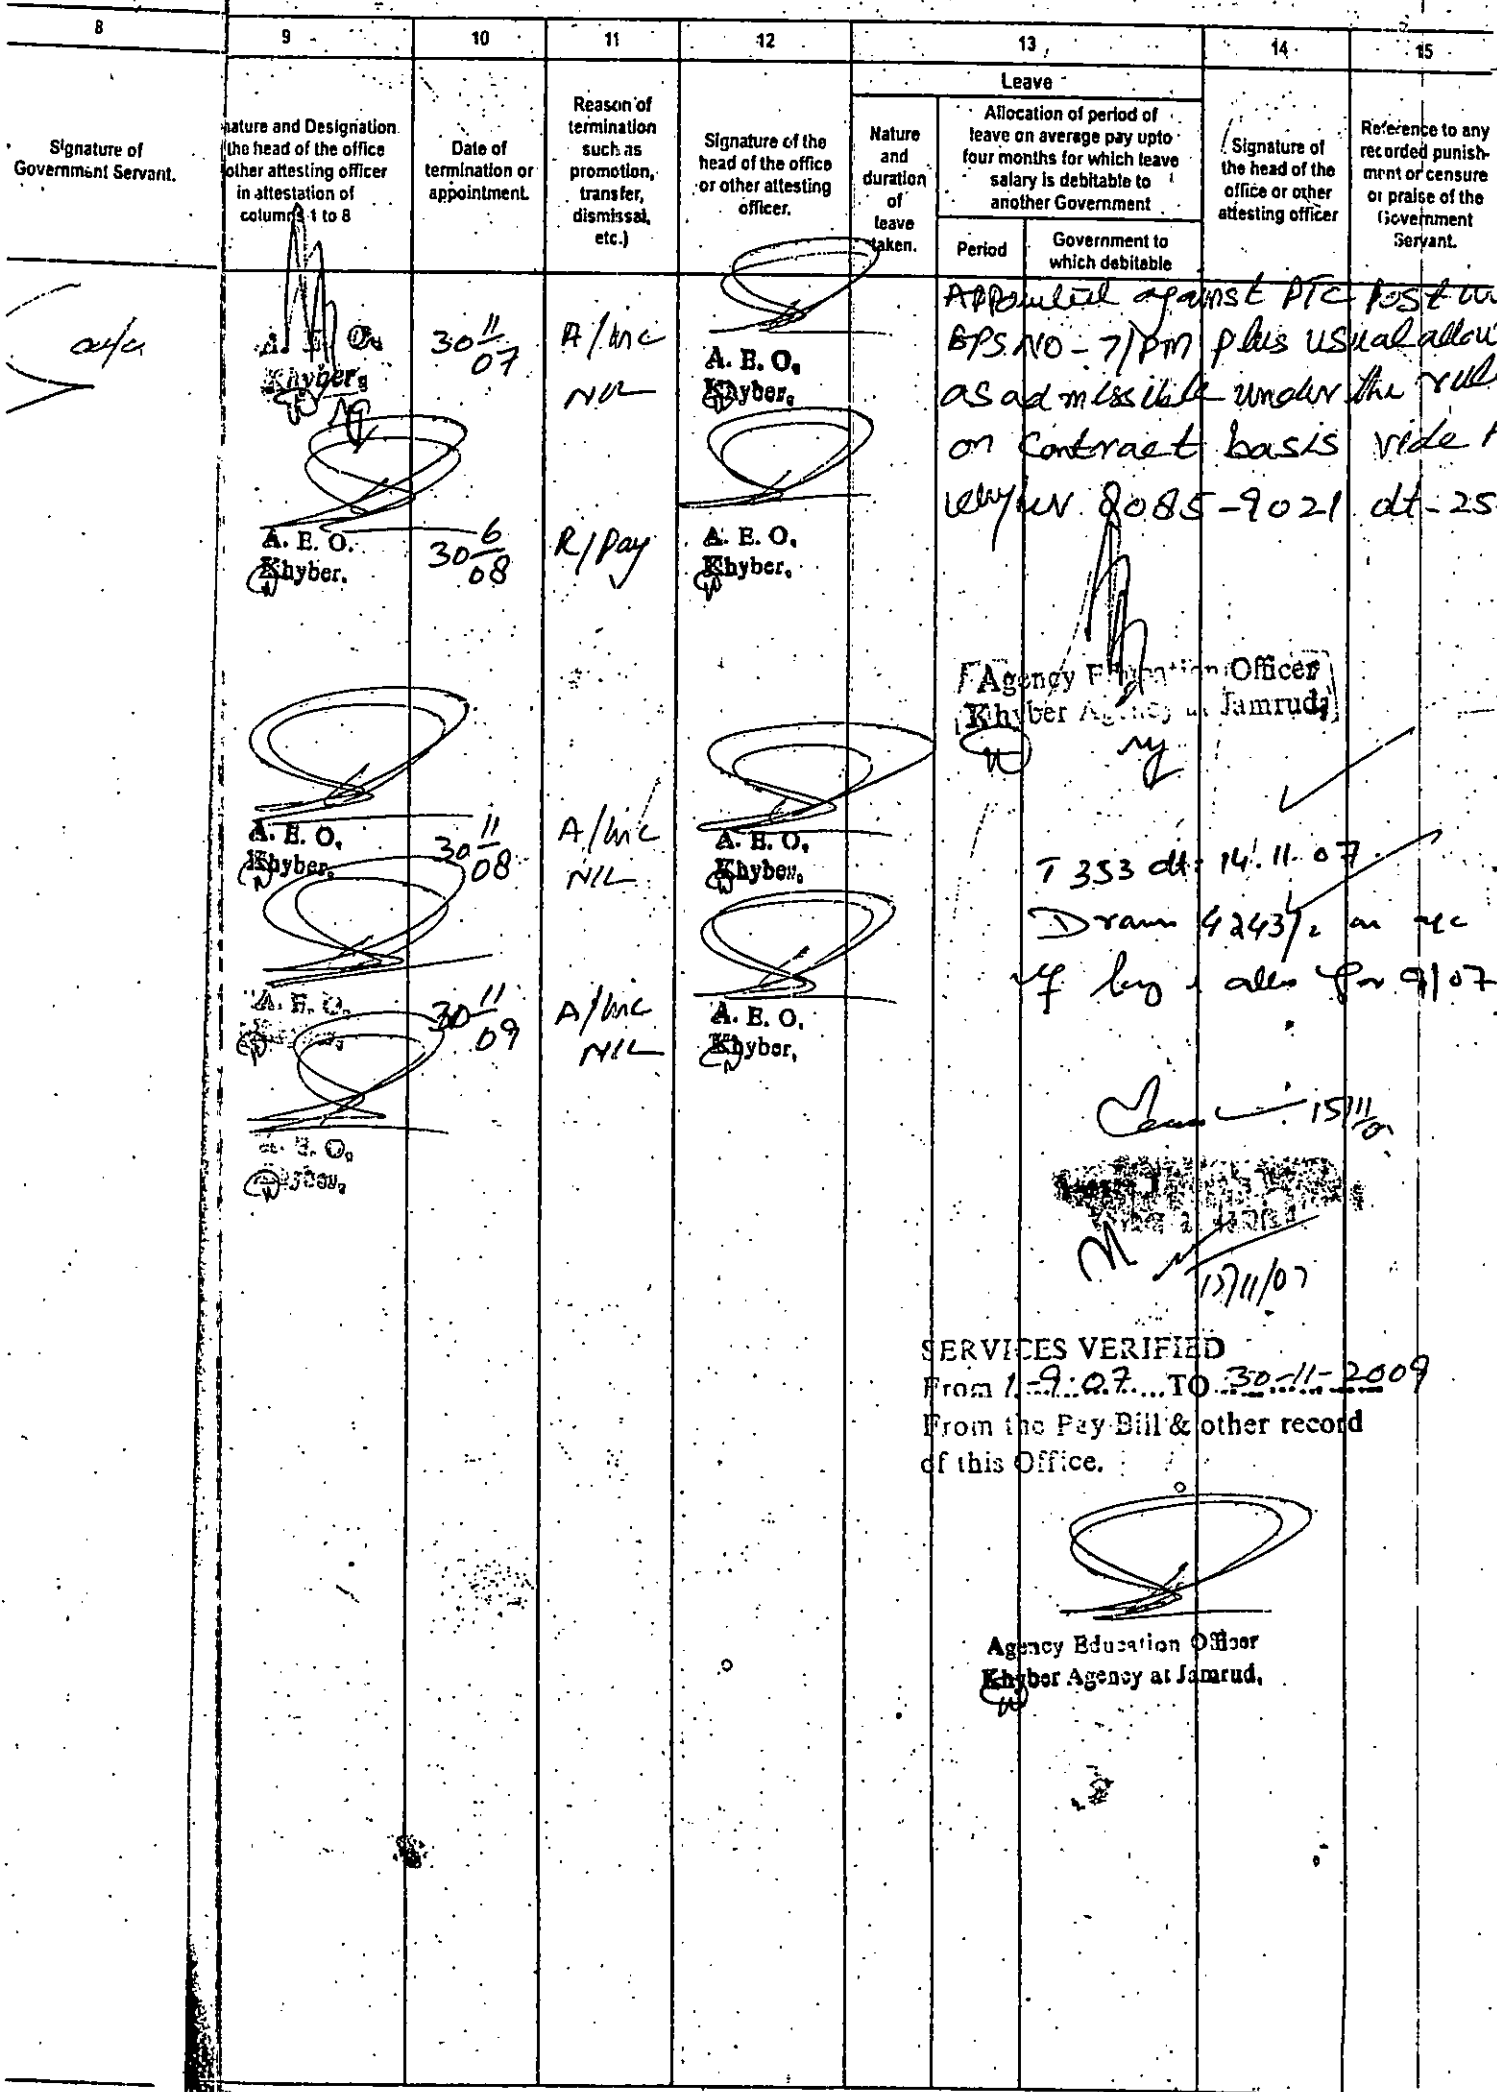 8 9 10 11 12 13 14 15
Signature of
Government Servant.
nature and Designation
the head of the office
other attesting officer
in attestation of
columns 1 to 8
Date of
termination or
appointment.
Reason of
termination
such as
promotion,
transfer,
dismissal,
etc.)
Signature of the
head of the office
or other attesting
officer.
Leave
Nature
and
duration
of
leave
taken.
Allocation of period of
leave on average pay upto
four months for which leave
salary is debitable to
another Government
Period
Government to
which debitable
Signature of
the head of the
office or other
attesting officer
Reference to any
recorded punish-
ment or censure
or praise of the
Government
Servant.
A. E. O.
Khyber,
30 11/07
A/inc
NIL
A. E. O,
Khyber,
Appointed against PTC post
BPS NO-7/pm plus usual allow
as admissible under the rul
on contract basis vide
8085-9021 dt-25
A. E. O.
Khyber.
30 6/08
R/Pay
A. E. O,
Khyber,
Agency Education Officer
Khyber Agency at Jamrud,
A. E. O,
Khyber,
30 11/08
A/inc
NIL
A. E. O,
Khyber,
T 353 dt: 14.11.07
Drawn 4243/2 on
for 9/07
A. E. O.
30 11/09
A/inc
NIL
A. E. O.
Khyber,
A. E. O,
15/11/07
SERVICES VERIFIED
From 1-9-07 TO 30-11-2009
From the Pay Bill & other record
of this Office.
Agency Education Officer
Khyber Agency at Jamrud,